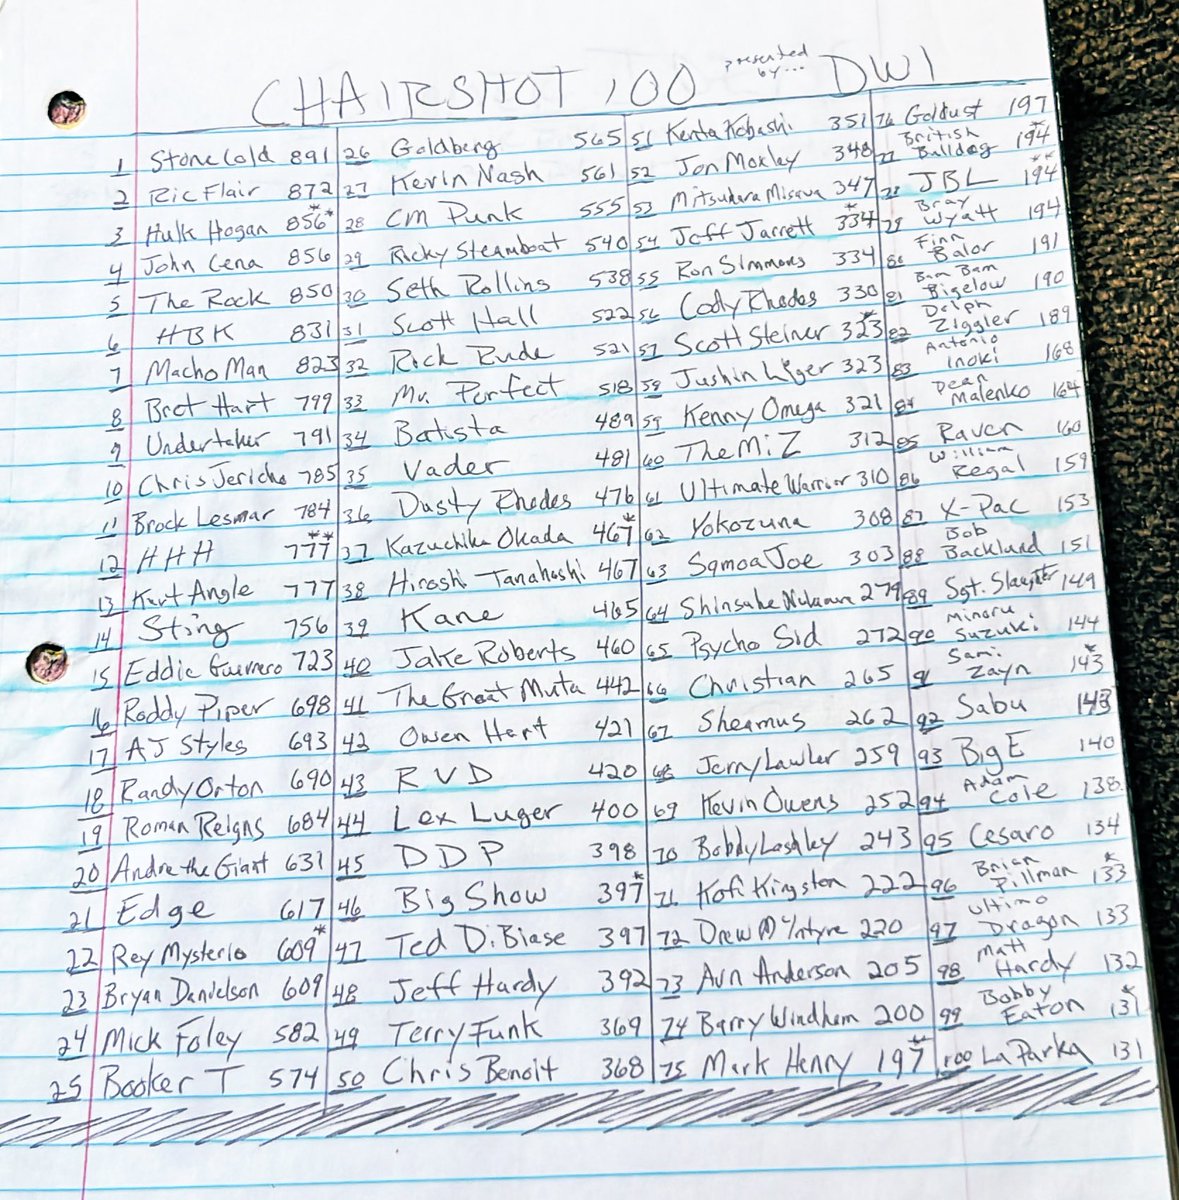 CHAIRSHOT 100 presented by... DWI
1 Stone Cold 891
2 Ric Flair 872
3 Hulk Hogan 856*
4 John Cena 856
5 The Rock 850
6 HBK 831
7 Macho Man 823
8 Bret Hart 799
9 Undertaker 791
10 Chris Jericho 785
11 Brock Lesnar 784
12 HHH 777**
13 Kurt Angle 777
14 Sting 756
15 Eddie Guerrero 723
16 Roddy Piper 698
17 AJ Styles 693
18 Randy Orton 690
19 Roman Reigns 684
20 Andre the Giant 631
21 Edge 617
22 Rey Mysterio 609*
23 Bryan Danielson 609
24 Mick Foley 582
25 Booker T 574
26 Goldberg 565
27 Kevin Nash 561
28 CM Punk 555
29 Ricky Steamboat 540
30 Seth Rollins 538
31 Scott Hall 522
32 Rick Rude 521
33 Mr. Perfect 518
34 Batista 489
35 Vader 481
36 Dusty Rhodes 476
37 Kazuchika Okada 467*
38 Hiroshi Tanahashi 467
39 Kane 465
40 Jake Roberts 460
41 The Great Muta 442
42 Owen Hart 421
43 RVD 420
44 Lex Luger 400
45 DDP 398
46 Big Show 397*
47 Ted DiBiase 397
48 Jeff Hardy 392
49 Terry Funk 369
50 Chris Benoit 368
51 Kenta Kobashi 351
52 Jon Moxley 348
53 Mitsuhara Misawa 347
54 Jeff Jarrett 334*
55 Ron Simmons 334
56 Cody Rhodes 330
57 Scott Steiner 323*
58 Jushin Liger 323
59 Kenny Omega 321
60 The MiZ 312
61 Ultimate Warrior 310
62 Yokozuna 308
63 Samoa Joe 303
64 Shinsuke Nakamura 279
65 Psycho Sid 272
66 Christian 265
67 Sheamus 262
68 Jerry Lawler 259
69 Kevin Owens 252
70 Bobby Lashley 243
71 Kofi Kingston 222
72 Drew McIntyre 220
73 Arn Anderson 205
74 Barry Windham 200
75 Mark Henry 197*
76 Goldust 197
77 British Bulldog 194*
78 JBL 194**
79 Bray Wyatt 194
80 Finn Balor 191
81 Bam Bam Bigelow 190
82 Dolph Ziggler 189
83 Antonio Inoki 168
84 Dean Malenko 164
85 Raven 160
86 William Regal 159
87 X-Pac 153
88 Bob Backlund 151
89 Sgt. Slaughter 149
90 Minoru Suzuki 144
91 Sami Zayn 143*
92 Sabu 143
93 Big E 140
94 Adam Cole 138
95 Cesaro 134
96 Brian Pillman 133*
97 Ultimo Dragon 133
98 Matt Hardy 132
99 Bobby Eaton 131*
100 La Parka 131